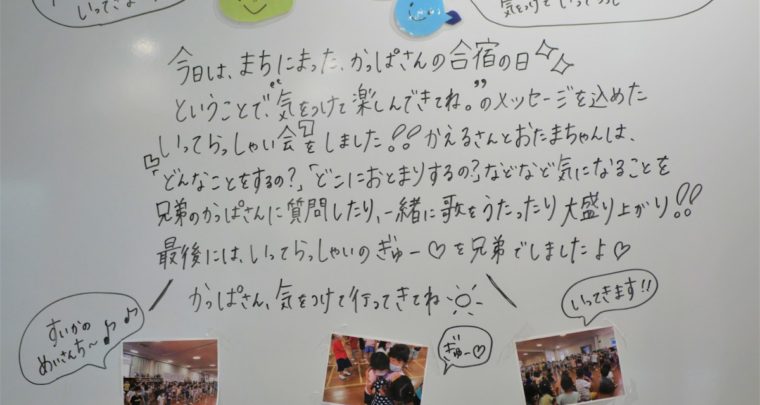 いってきまーす
気をつけていってらっしゃい
今日は、まちにまった、かっぱさんの合宿の日
ということで、“気をつけて楽しんできてね。”のメッセージを込めた
「いってらっしゃい会」をしました!! かえるさんとおたまちゃんは、
「どんなことをするの?」「どこにおとまりするの?」などなど気になることを
兄弟のかっぱさんに質問したり、一緒に歌をうたったり大盛り上がり!!
最後には、いってらっしゃいのぎゅー♡を兄弟でしましたよ♡
かっぱさん、気をつけて行ってきてね
すいかの
めいさんち〜♪♪
ぎゅー♡
いってきます!!